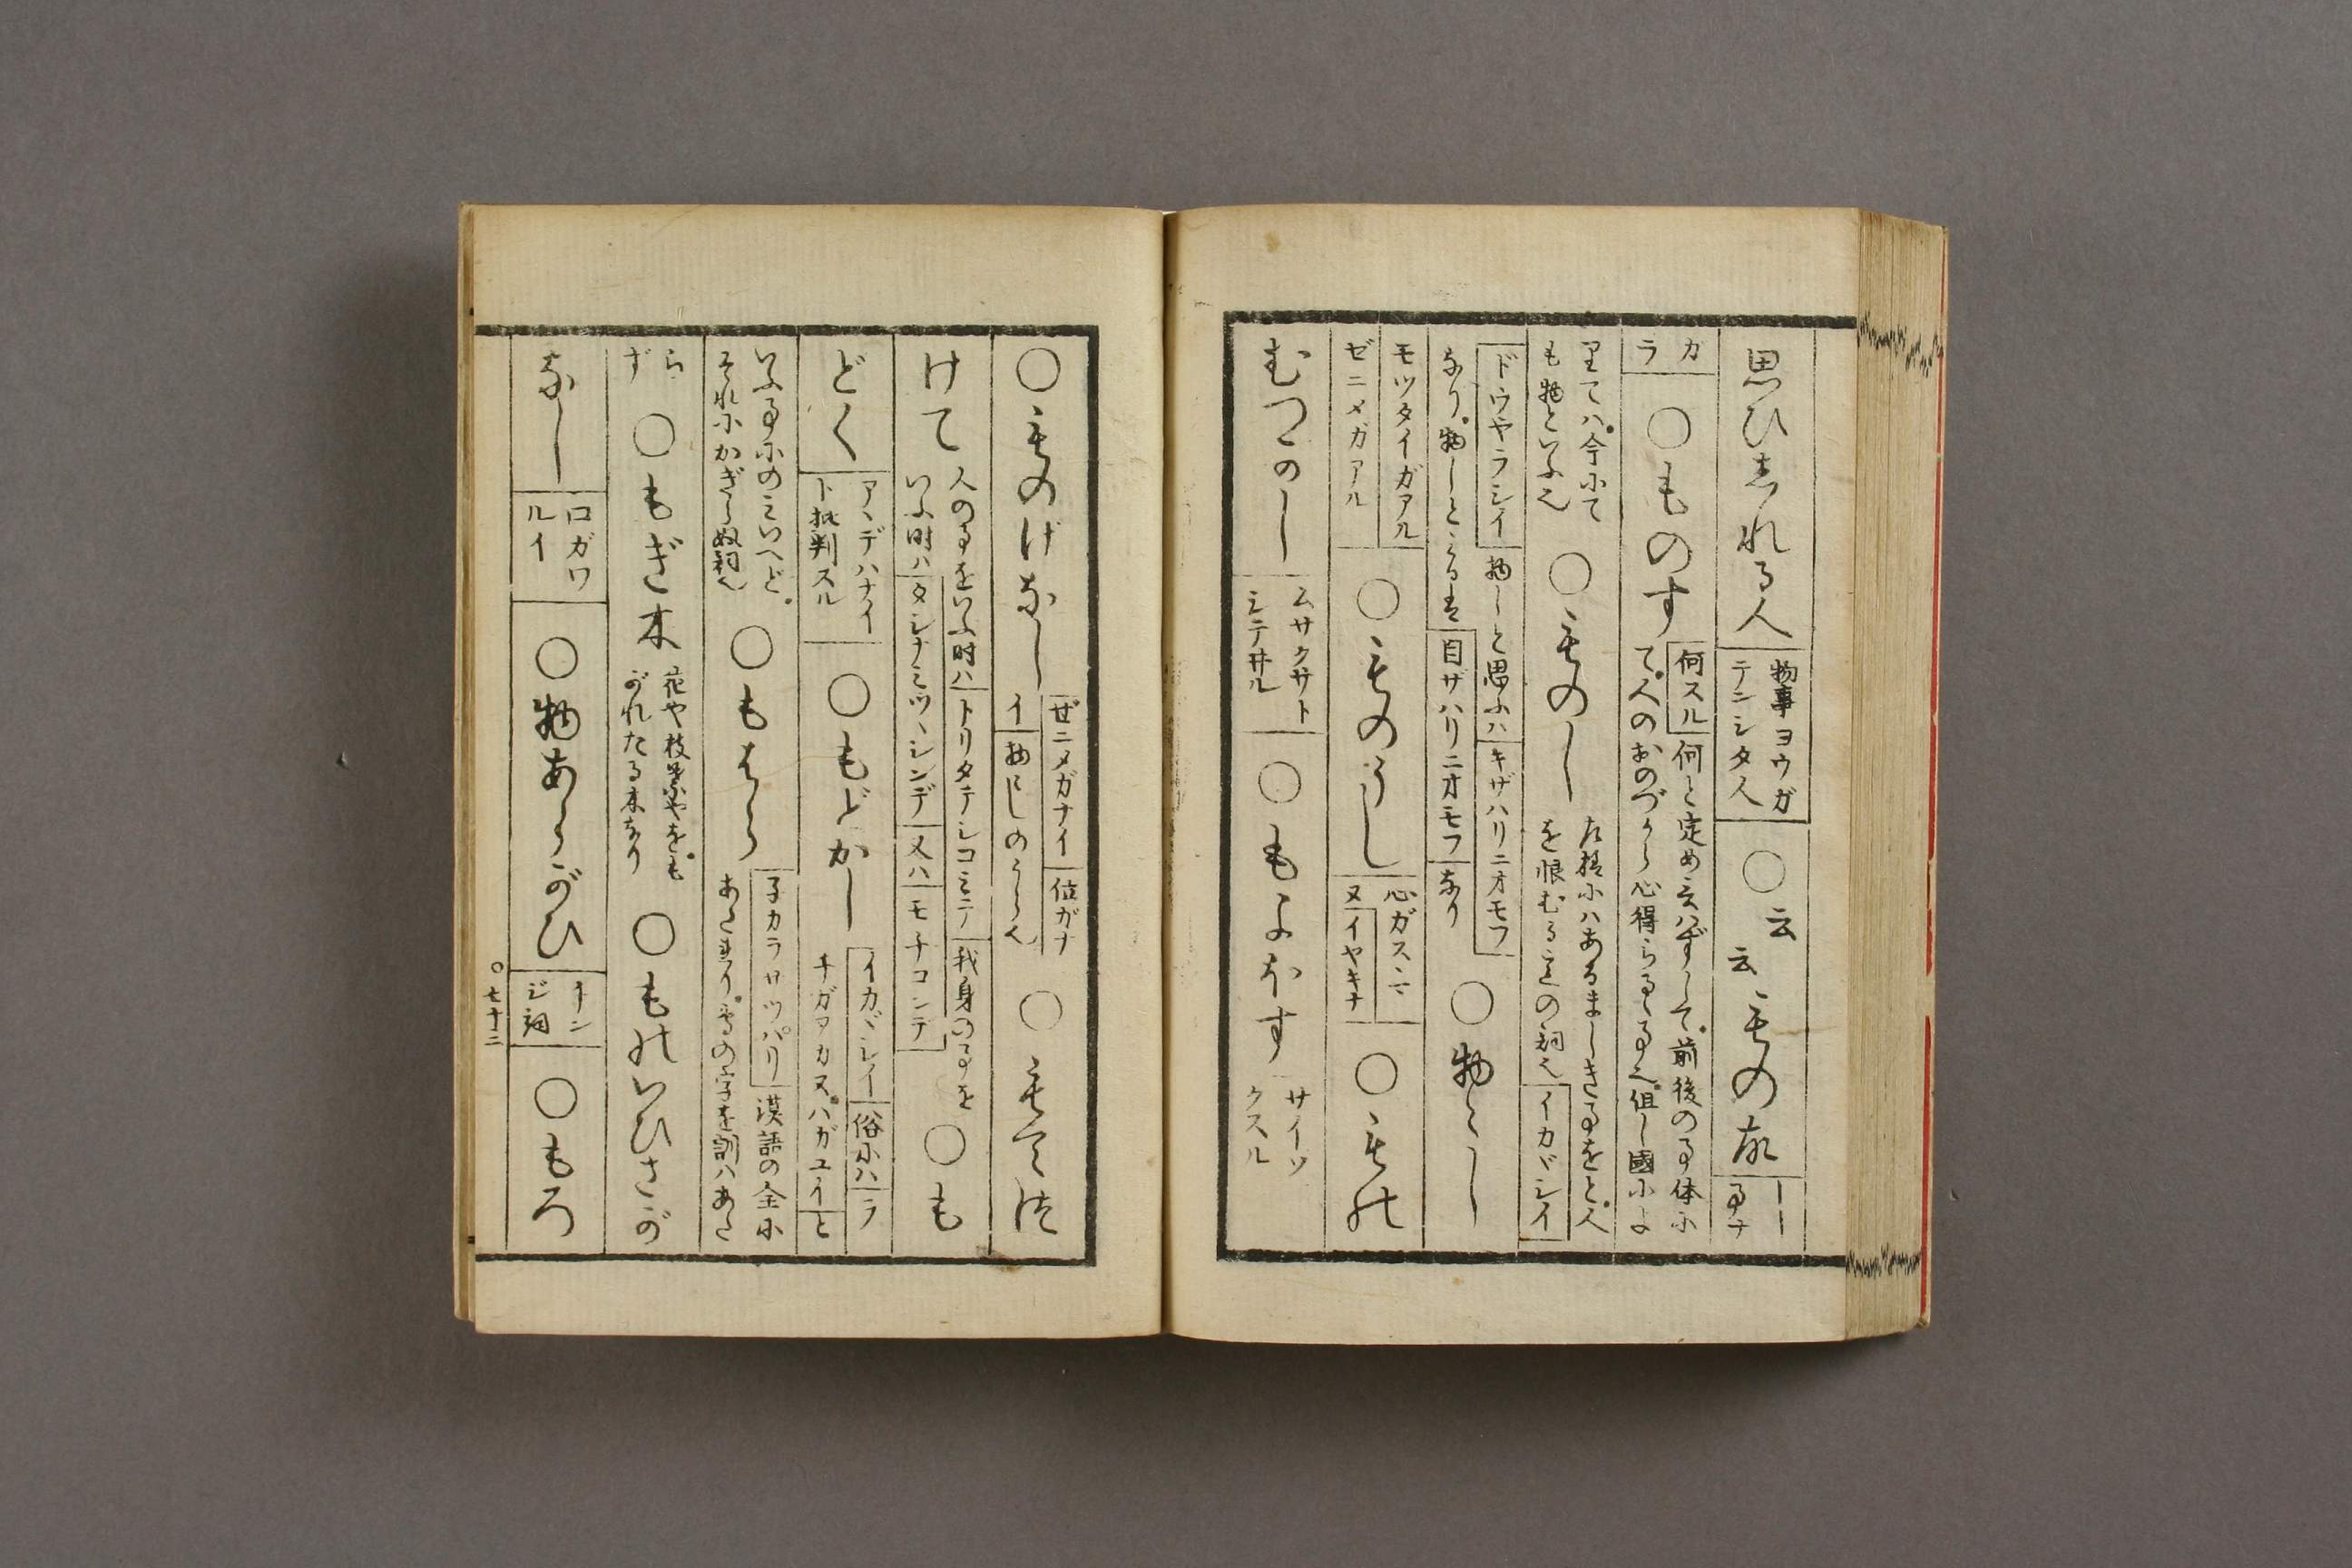 思ひしれる人 物事ヨウガテンシタ人 ○云云ものか ――事ナ
カラ ○ものす 何スル 何と定め云はずして、前後の事体にて、人のおのづから心得らるゝ事也、但し國によ
りては、今にても物といふ也 ○ものし 左様にはあるまじき事をと、人を恨むることの詞也 イカヾシイ
ドウヤラシイ 物しと思ふは キザハリニオモフ なり、物しとミるは 目ザハリニオモフ なり ○物〳〵し
モツタイガアル ゼニメガアル ○ものうし 心ガスヽマヌ イヤキナ ○もの
むつかし ムサクサトシテ井ル ○もよほす サイソクスル
○ものげなし ゼニメガナイ 位ガナイ 物しのうら也 ○もてつ
けて 人の事をいふ時ハ トリタテシコミテ 我身の事をいふ時ハ タシナミツヽシンデ 又ハ モチコンデ ○も
どく アヽデハナイト批判スル ○もどかし イカヾシイ 俗にハ ラチガアカヌ、ハガユイ と
いふ事にのミいへど、それにかぎらぬ詞也 ○もはら 子カラサツパリ 漢語の全にあたれり、専の字を訓ハあた
らず ○もぎ木 花や枝葉やをもがれたる木なり ○ものいひさが
なし 口ガワルイ ○物あらがひ ○もろ
○七十二